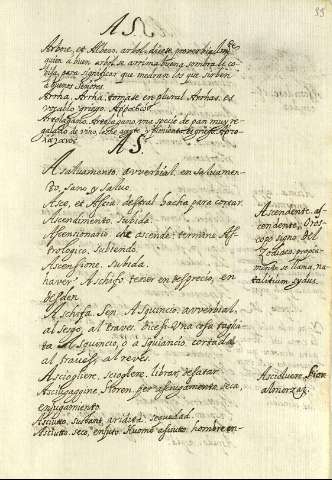 A S.
Arbore, et Albero, arbol. dicese proverbialmente
quien a buen arbol se arrima buena sombra le co-
bija, para significar que medran los que sirben
a buenos Señores
Arrha. Arrhâ, tomase en plural Arrhas. es
vocablo griego.
una specie de pan muy re-
galado de vino, leche, azeite, y pimienta. es griego.
A S.
A salvamento, avverbial, en salvamen-
to, Sano y Salvo.
Asce, et Ascia, destral hacha para cortar.
Ascendimento, Subida.
Ascensionario, che ascende: termine Ass-
trologico, Subiendo.
Ascensione, subida.
haver' A schifo tener en desprecio, en
desden
A schifa. Sen. A Squincio, avverbial,
al sesgo, al traves. Dicesi Una cosa taglia-
ta A Squincio, o a sguiancio, cortada
al traves, al reves.
Asciogliere, sciogliere, librar, desatar.
Asciugaggine, Floren. per asciugamento, seca,
enjugamento
Asciutto, sustant. aridità, sequedad.
Asciutto, seco, enjuto. Huomo asciutto, hombre en-
Ascendente, as-
cendente, Oros-
copo signo del
Zodiaco, propia-
mente se llama na-
talitium sydus.
Asciolvere, Floren.
almorzar.